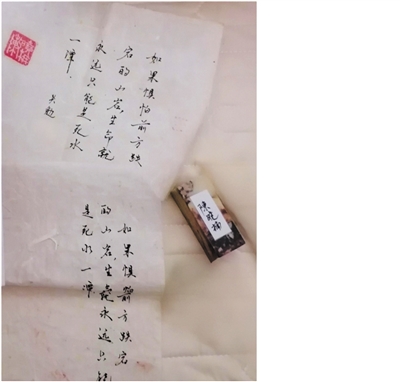 如果惧怕前方跌
宕的山岩,生命就
永远只能是死水
一潭.
如果惧前方跌宕
的山岩,生命永远只能
是死水一潭
陳曉